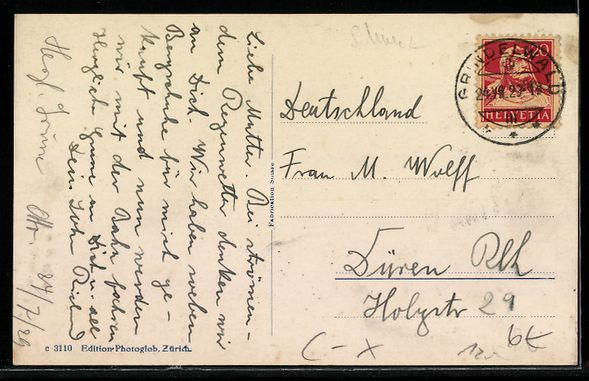 Liebe Mutter. Bei strömen-
dem Regenwetter denken wir
an Dich. Wir haben soeben
Bergschuhe für mich ge-
kauft und nun werden
wir mit der Bahn fahren
Herzliche Grüsse an Dich u. all
Dein Sohn Richard
Herzl. Grüsse Otto.
24/7/29
c 3110 Edition Photoglob, Zürich.
Fabrication Suisse
20
HELVETIA
GRINDELWALD
Deutschland
Frau M. Wolff
Düren Rhl
Holzstr 29
C-X